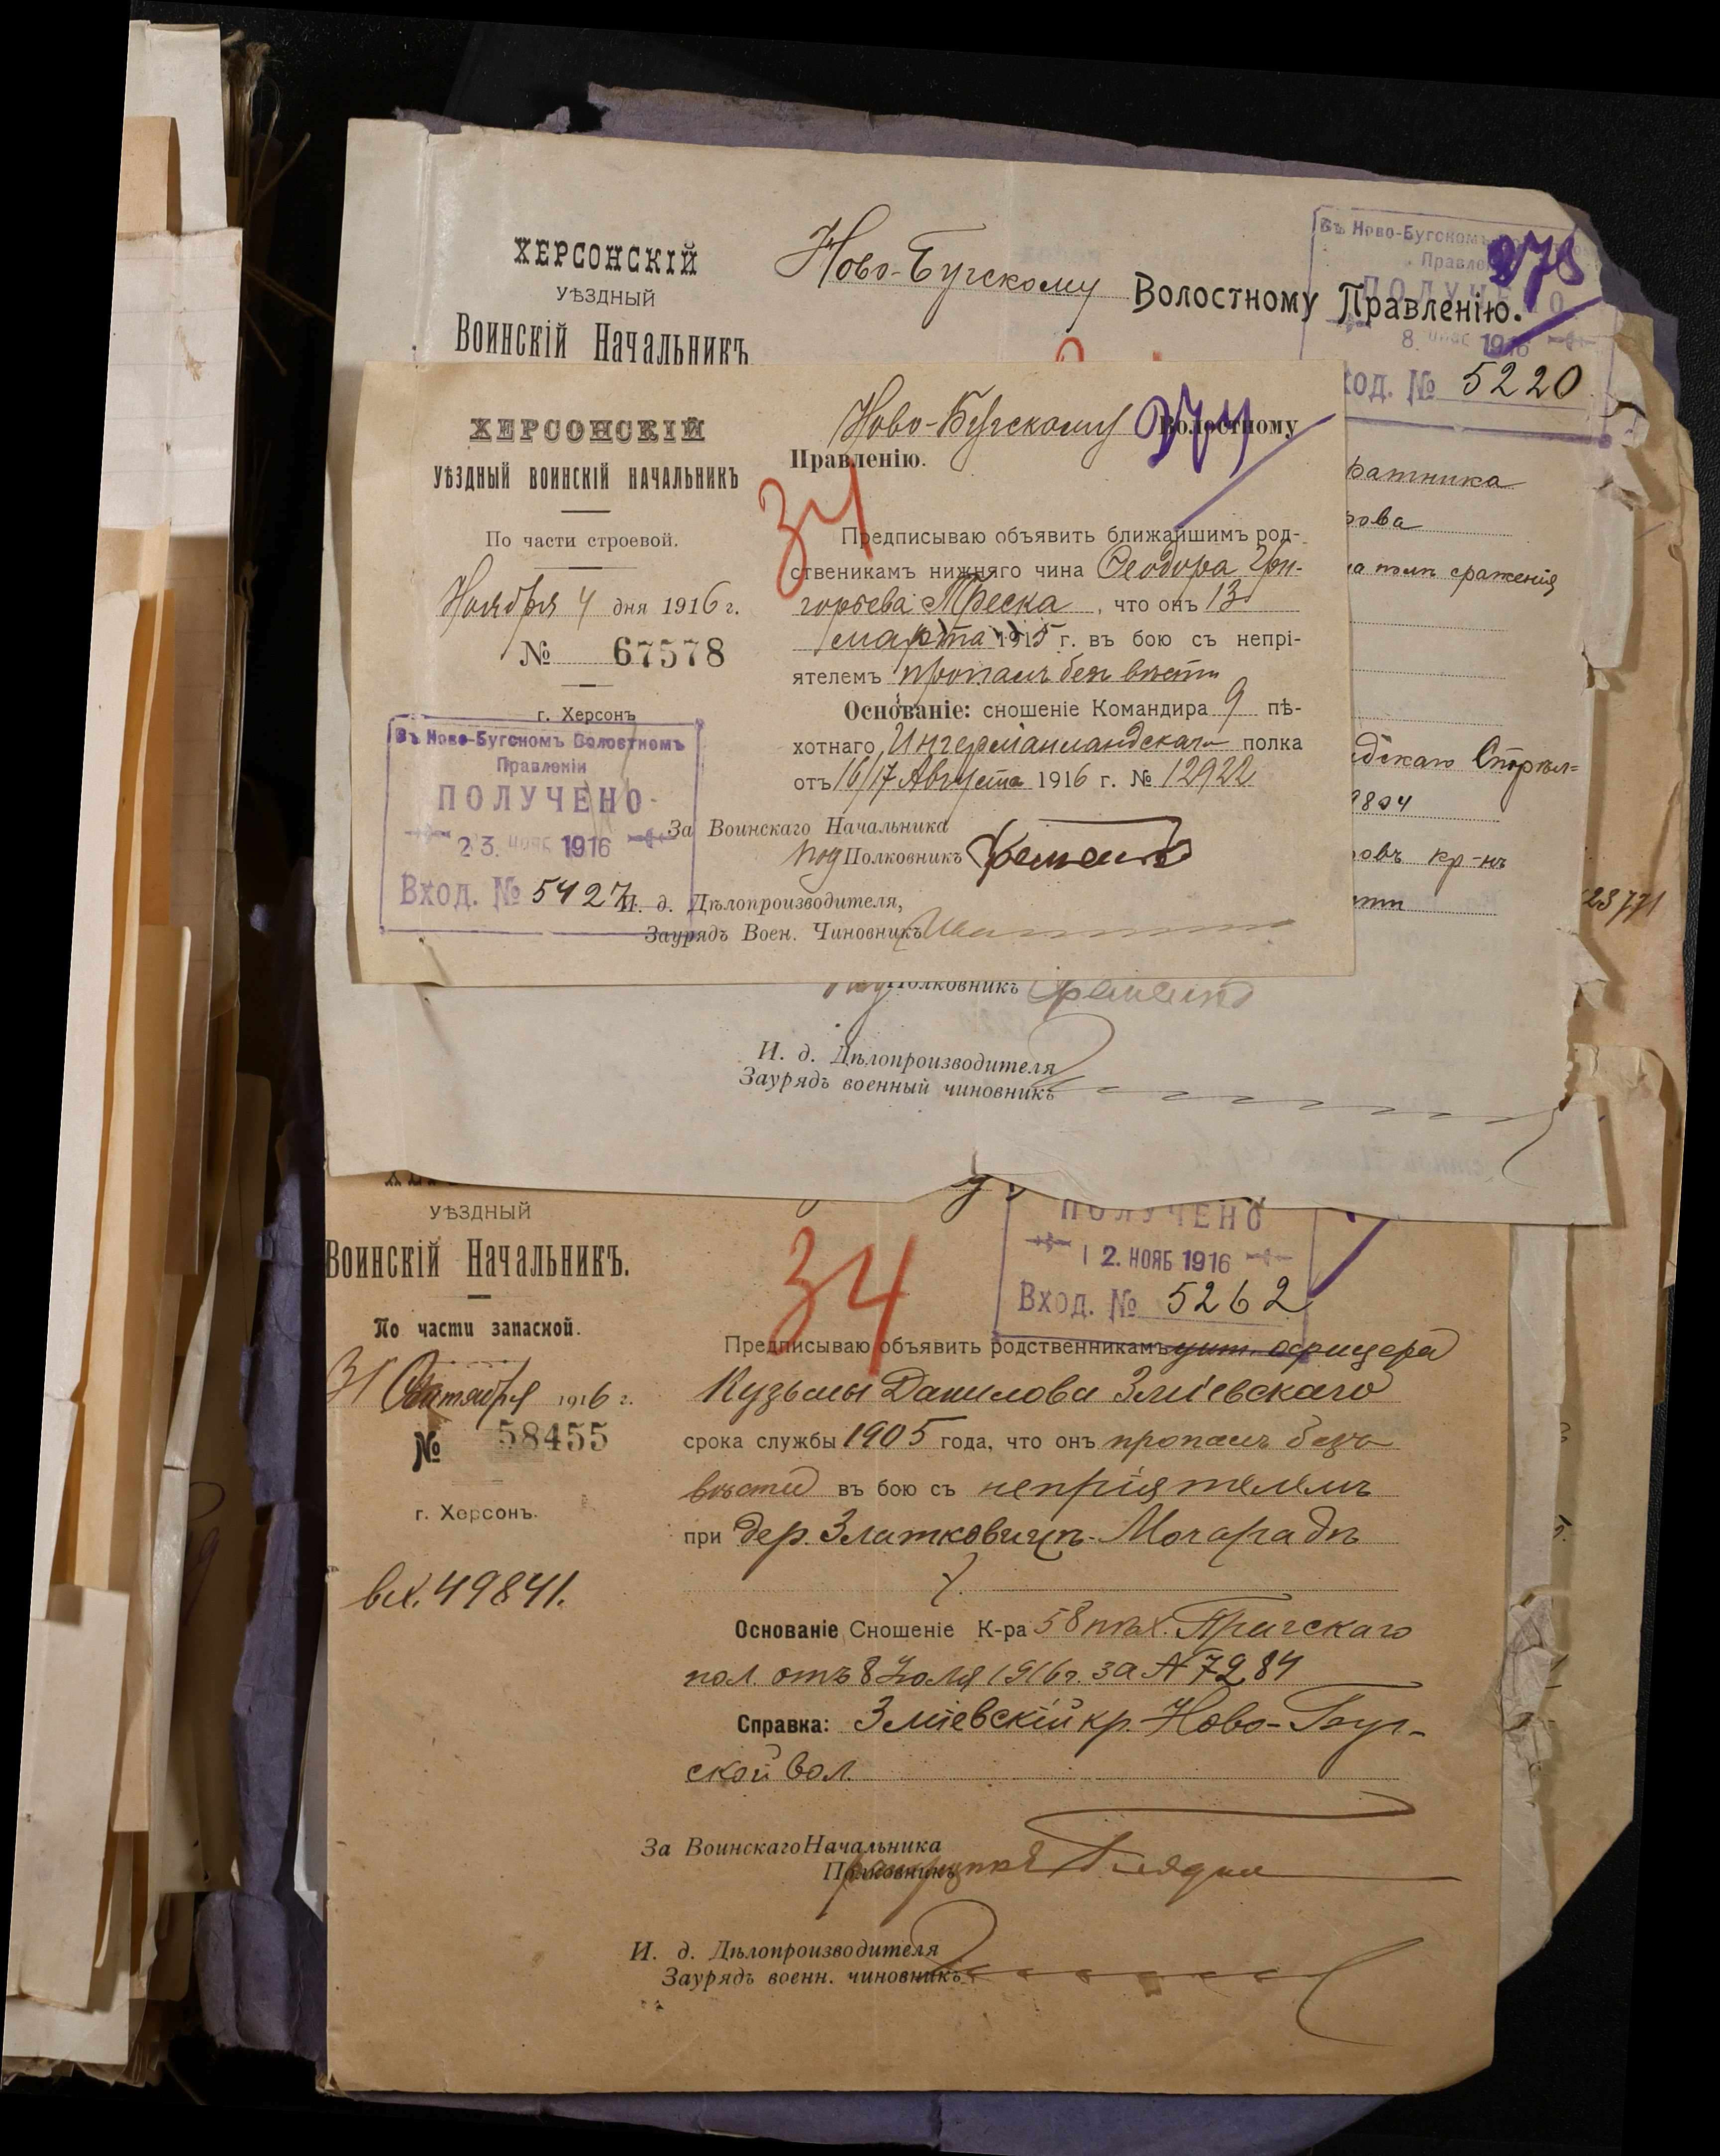 ХЕРСОНСКІЙ
УѢЗДНЫЙ
ВОИНСКІЙ НАЧАЛЬНИКЪ
Ново-Бугскому Волостному Правленію.
Въ Ново-Бугскомъ
Правле
278
ПОЛУЧЕНО
8. 1916
ход. № 5220
ратника
рова
сраженія
дскаго Стрѣл=
9804
ровъ кр-нъ
23771
ХЕРСОНСКІЙ
УѢЗДНЫЙ ВОИНСКІЙ НАЧАЛЬНИКЪ
По части строевой.
Ноября 4 дня 1916 г.
№ 67578
г. Херсонъ
Въ Ново-Бугскомъ Волостномъ
Правленіи
ПОЛУЧЕНО
23. НОЯБ 1916
Вход. № 5427
Ново-Бугскому Волостному
274
Правленію.
34
Предписываю объявить ближайшимъ род-
ственикамъ нижняго чина Ѳеодора Гри-
горьева Треска, что онъ 13
марта 1915 г. въ бою съ непрі-
ятелемъ пропалъ безъ вѣсти
Основаніе: сношеніе Командира 9 пѣ-
хотнаго Ингерманландскаго полка
отъ 16/17 Августа 1916 г. № 12922
За Воинскаго Начальника
подПолковникъ
И. д. Дѣлопроизводителя,
Заурядъ Воен. Чиновникъ
подПолковникъ
И. д. Дѣлопроизводителя
Заурядъ военный чиновникъ
УѢЗДНЫЙ
ВОИНСКІЙ НАЧАЛЬНИКЪ.
По части запасной.
31 Октября 1916 г.
№ 58455
г. Херсонъ.
вх. 49841.
34
ПОЛУЧЕНО
12. НОЯБ 1916
Вход. № 5262
Предписываю объявить родственникамъ унт. офицера
Кузьмы Данилова Зміевскаго
срока службы 1905 года, что онъ пропалъ безъ
вѣсти въ бою съ непріятелемъ
при дер. Злотковицѣ-Могорадъ
Основаніе Сношеніе К-ра 58 пѣх. Прагскаго
пол. отъ 8 Іюля 1916 г. за № 7284
Справка: Зміевскій кр. Ново-Буг-
ской вол.
За Воинскаго Начальника
Полковникъ
И. д. Дѣлопроизводителя
Заурядъ военн. чиновникъ